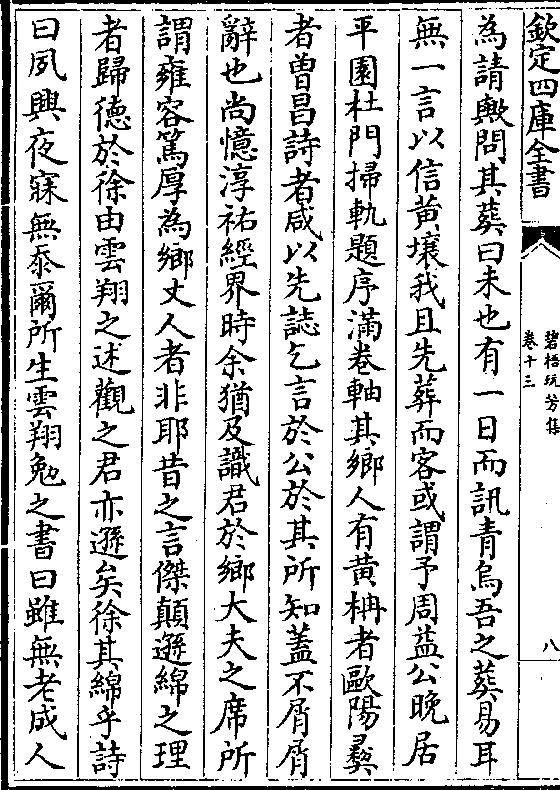 欽定四庫全書
碧梧玩芳集
卷十三
八
為請輿問其葬曰未也有一日而訊青烏吾之葬易耳
無一言以信黄壤我且先葬而客或謂予周益公晚居
平園杜門掃軌題序滿卷軸其鄉人有黄柟者歐陽彞
者曽昌詩者咸以先誌乞言於公於其所知蓋不屑屑
辭也尚憶淳祐經界時余猶及識君於鄉大夫之席所
謂雍容篤厚為鄉丈人者非耶昔之言傑顛遜綿之理
者歸徳於徐由雲翔之述觀之君亦遜矣徐其綿乎詩
曰夙興夜寐無忝爾所生雲翔勉之書曰雖無老成人